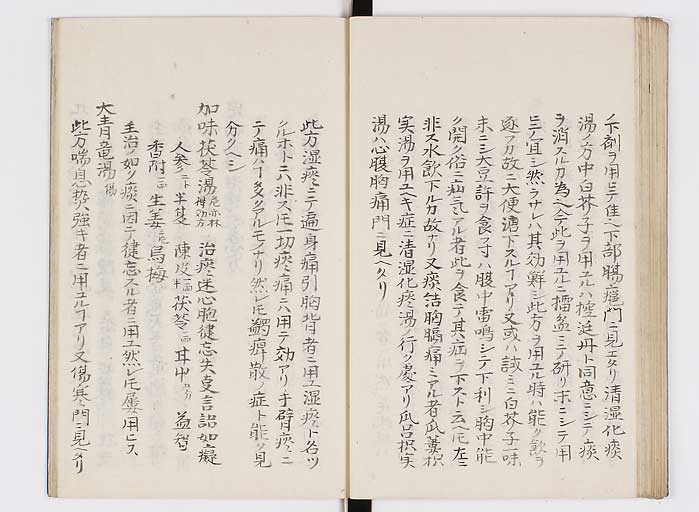 ノ下剤ヲ用ヒテ佳ヘ下部腸癰門ニ見エタリ清湿化痰
湯ノ方中白芥子ヲ用エルハ控涎丹ト同意ニシテ痰
ヲ消スルカ為ヘ今此ヲ用エルニ擂盆ニテ研リ末ニシテ用
ヒテ宜シ然ラサレハ其効鮮シ此方ヲ用エル時ハ能ク飲ヲ
逐フカ故ニ大便溏下スルコアリ又或ハ試ミニ白芥子一味
末ニシテ大豆許ヲ食フ寸ハ腹中雷鳴シテ下利シ胸中能
ク開ク俗ニ疝氣アル者此ヲ食テ其疝ヲ下スト云ヘ𪜈左ニ
非ス水飲下ルカ故ナリ又痰結胸膈痛ミアル者瓜蔞枳
実湯ヲ用ユヘキ症ニ清湿化痰湯ノ行ク處アリ瓜呂枳実
湯ハ心腹胸痛門ニ見ヘタリ
此方湿痰ニテ遍身痛引胸背者ニ用ユ湿痰ト名ツ
クルホトニハ非ス𪜈一切痰痛ニハ用テ効アリ手臂痰ニ
テ痛ハ多クアルモノナリ然レ𪜈蠲痺散ノ症ト能ク見
分クヘシ
加味茯苓湯 危亦林得効方 治痰迷心胞健忘失支言語如癡
人参 半夏 陳皮 茯苓 甘草 益智
香附 生姜 烏梅
主治ノ如ク痰ニ因テ健忘スル者ニ用ユ然レ𪜈屢用ヒス
大青竜湯
此方喘息勢強キ者ニ用エルコアリ又傷寒門ニ見ヘタリ